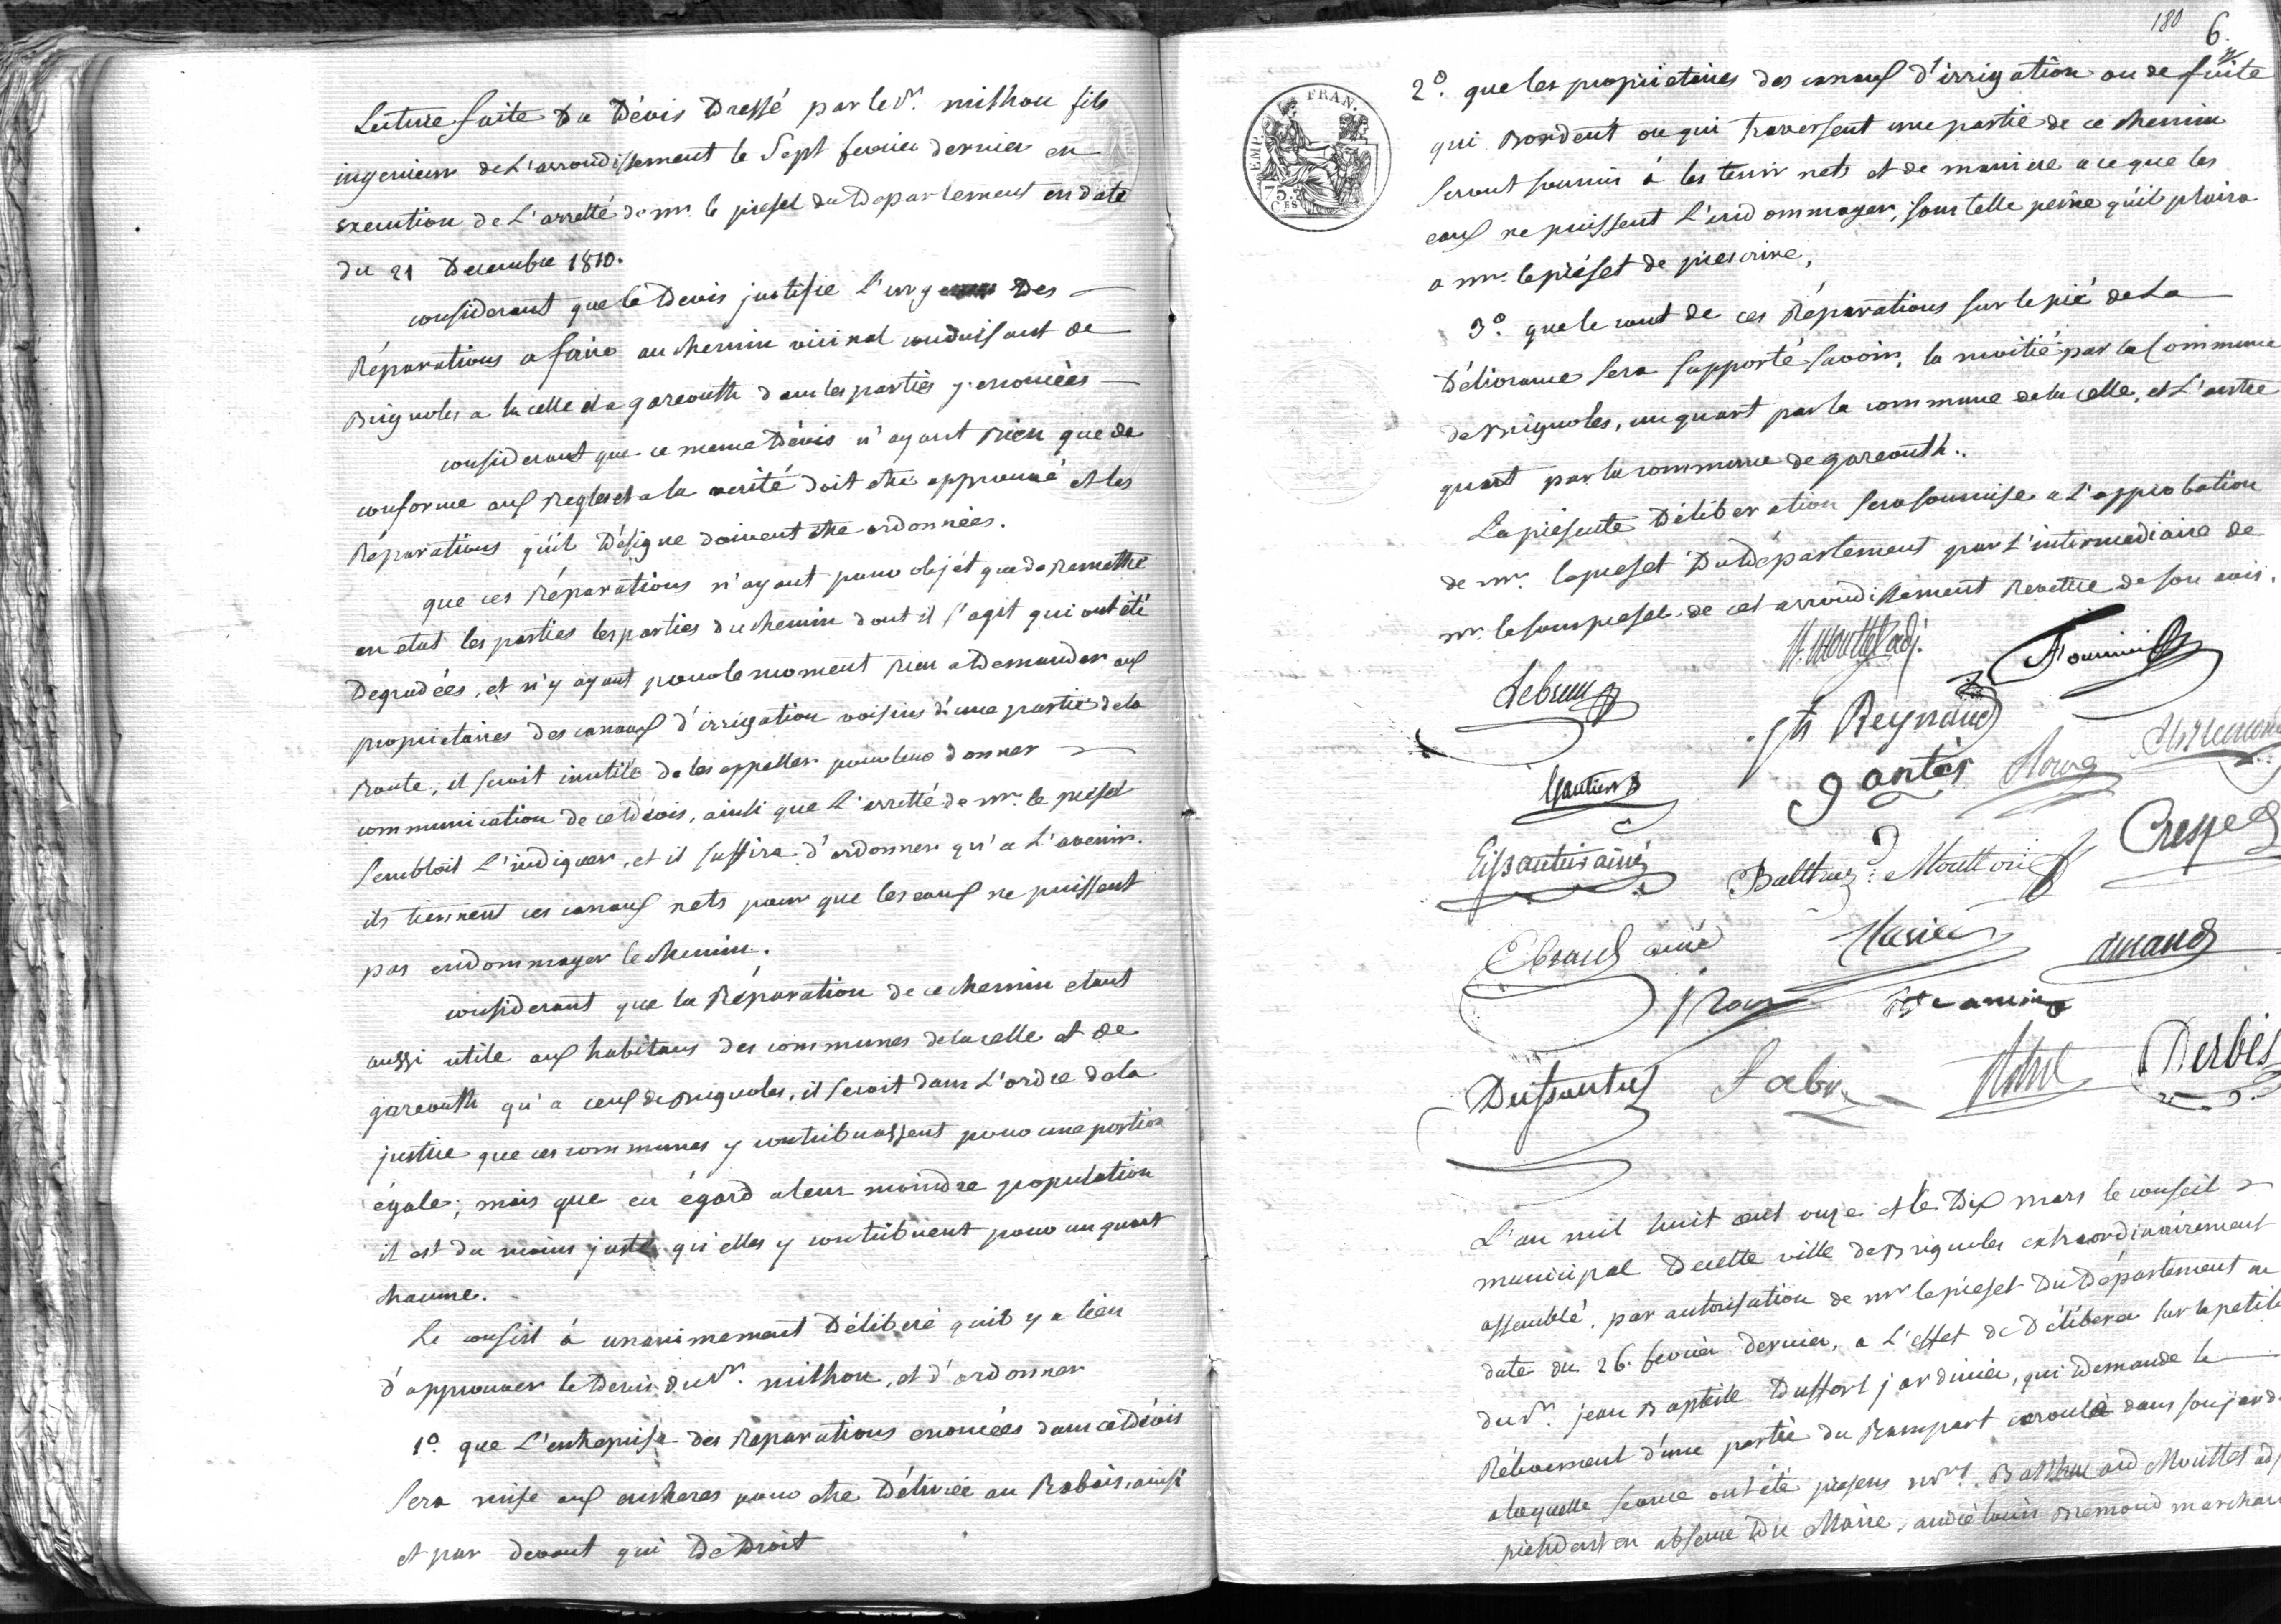 Lecture faite Du Dévis Dressé par le Sr. mithou fils
ingenieur de L'arrondissement le Sept fevrier dernier en
execution de L'arretté de mr. le prefet du Departement en date
du 21 Decembre 1810.
considerant que le Devis justifie L'urgence Des
Réparations a faire au chemin vicinal conduisant de
Brignoles a la celle et a gareoulh dans les parties y enoncées
considerant que ce meme Dévis n'ayant rien que de
conforme aux Regles et a la verité doit etre approuvé et les
Réparations qu'il Désigne doivent etre ordonnées.
que ces Réparations n'ayant pour objét que de Remettre
en etat les parties les parties du chemin dont il s'agit qui ont été
Degradées, et n'y ayant pour le moment rien a Demander aux
proprietaires des canaux d'irrigation voisins d'une partie de la
Route, il seroit inutile de les appeller pour leur donner
communication de ce Dévis, ainsi que L'arretté de mr. le prefet
Sembloit L'indiquer, et il suffira d'ordonner qu'a L'avenir.
ils tiennent ces canaux nets pour que les eaux ne puissent
pas endommager le chemin.
considerant que la Réparation de ce chemin etant
aussi utile aux habitans des communes de la celle et de
gareoulh qu'a ceux de Brignoles, il seroit dans L'ordre de la
justice que ces communes y contribuassent pour une portion
égale; mais que eu égard a leur moindre population
il est du moins juste qu'elles y contribuent pour un quart
chacune.
Le conseil à unanimement Délibéré qu'il y a lieu
d'approuver le Devis du Sr. mithou, et d'ordonner
1º. que L'entreprise des Réparations enoncées dans ce Dévis
Sera mise aux encheres pour etre Délivrée au Rabais, ainsi
et par devant qui De Droit
180 6.
2º. que les proprietaires des canaux d'irrigation ou de fuite
FRAN.
EMP.
75.
C.ES
qui Bordent ou qui traversent une partie de ce chemin
Seront soumis à les tenir nets et de maniere a ce que les
eaux ne puissent L'endommager, sous telle peine qu'il plaira
a mr. le préfet de prescrire,
3º. que le cout de ces Réparations sur le pié de la
Délivrance sera supporté savoir, la moitié par la Commune
de Brignoles, un quart par la commune de la celle, et L'autre
quart par la commune de gareoulh.
La présente Délibération sera soumise a L'approbation
de mr. le prefet Du Département par L'intermédiaire de
mr. le sousprefet de cet arrondissement Revettue de son avis.
Lebrun
Reynaud
Fournier
Gautier
gantés
Eissautier ainé
Balthaz: Mouttou
Crespe
Ebrard ainé
amand
Fabre
Derbès
L'an mil huit cent onze et le Dix mars le conseil
municipal De cette ville de Brignoles extraordinairement
assemblé, par autorisation de mr le préfet Du Département en
date du 26. fevrier dernier, a L'effet de Délibérer sur la petit
du Sr. jean Baptiste Duffort jardinier, qui Demande le
Rélèvement d'une partie du Rempart ecroulé dans son jard.
a laquelle seance ont été presens mrs. Balthazard Mouttet adj
président en absence Du Maire, andré louis Bremond marchan